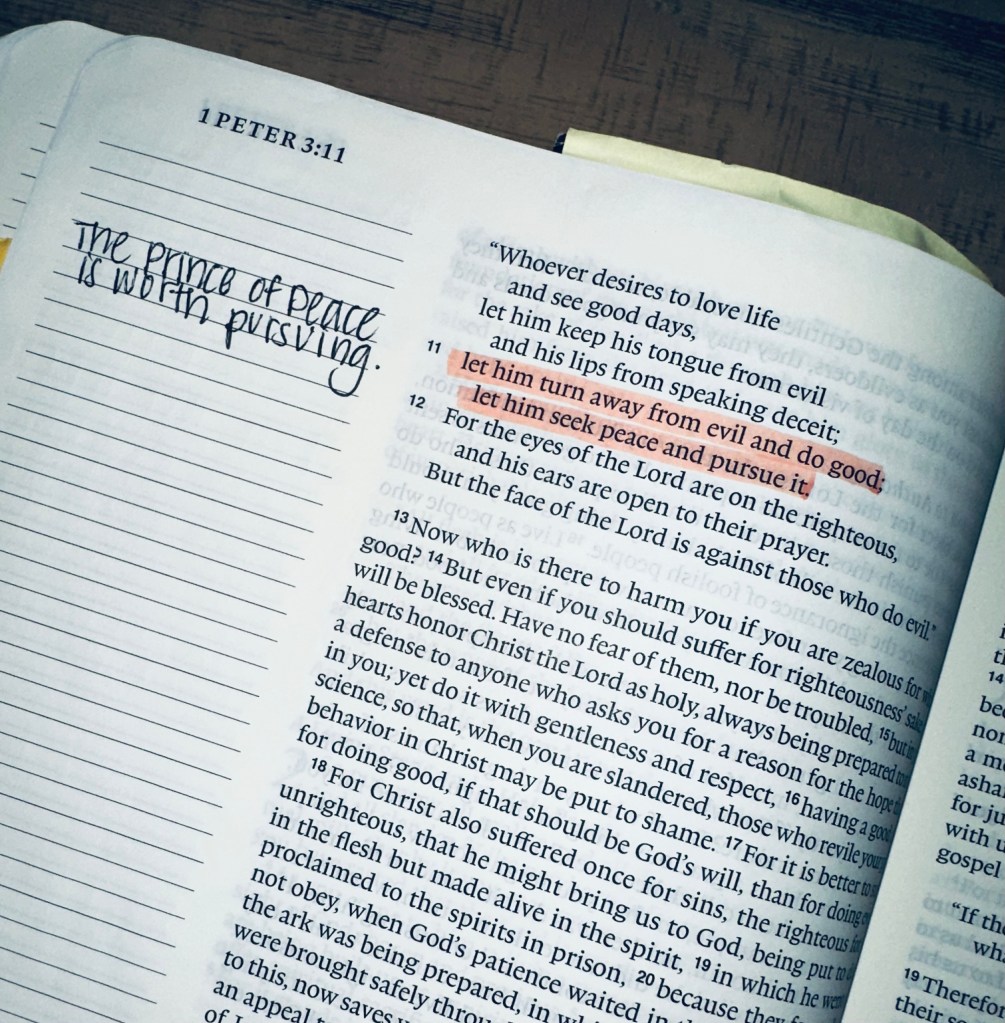 1 PETER 3:11
The prince of peace
is worth pursuing.
“Whoever desires to love life
and see good days,
let him keep his tongue from evil
and his lips from speaking deceit;
11 let him turn away from evil and do good;
let him seek peace and pursue it.
12 For the eyes of the Lord are on the righteous,
and his ears are open to their prayer.
But the face of the Lord is against those who do evil.”
13 Now who is there to harm you if you are zealous for
good? 14 But even if you should suffer for righteousness’
will be blessed. Have no fear of them, nor be troubled, 15 but
hearts honor Christ the Lord as holy, always being prepared
a defense to anyone who asks you for a reason for the hope
in you; yet do it with gentleness and respect, 16 having a good
science, so that, when you are slandered, those who revile your
behavior in Christ may be put to shame. 17 For it is better
for doing good, if that should be God’s will, than for doing
18 For Christ also suffered once for sins, the righteous
unrighteous, that he might bring us to God, being put
in the flesh but made alive in the spirit, 19 in which he went
proclaimed to the spirits in prison, 20 because they
not obey, when God’s patience waited in
the ark was being prepared, in
were brought safely
to this, now saves
an appeal
of
14
a
asha
for ju
with u
gospel
“If the
19 Therefo
their so